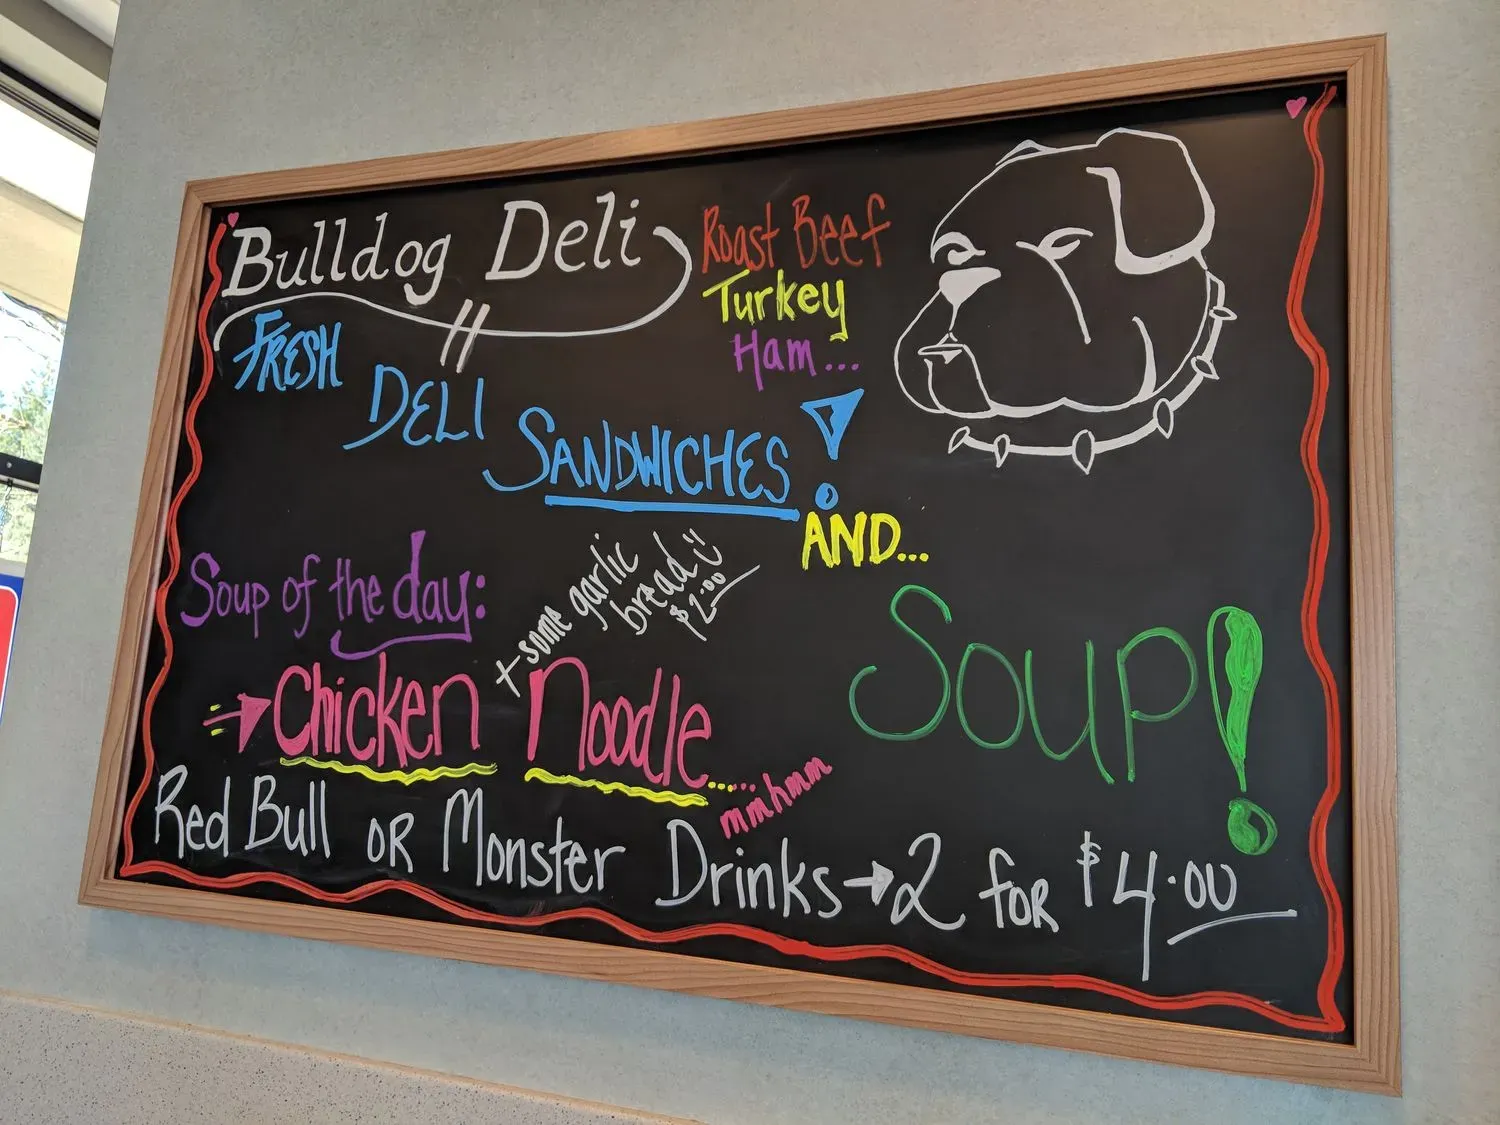 Bulldog Deli
Roast Beef
Turkey
Ham...
FRESH
DELI
SANDWICHES!
AND...
SOUP!
Soup of the day:
Chicken Noodle.....
+ some garlic
bread
mmhmm
Red Bull OR Monster Drinks → 2 for $4.00